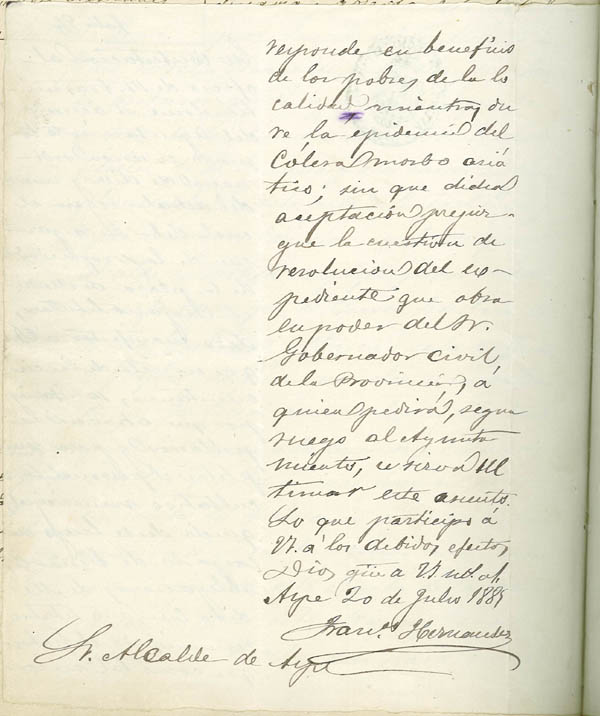 responde en beneficio
de los pobres de la lo
calidad mientras du
re la epidemia del
Cólera morbo asiá
tico; sin que dicha
aceptación prejuz-
gue la cuestion de
resolucion del ex-
pediente que obra
en poder del Sr.
Gobernador civil
de la Provincia, á
quien pedirá, segun
ruego al Ayunta
miento, se sirva ul
timar este asunto.
Lo que participo á
V. á los debidos efectos
Dios gūe a V. m.s a.s
Aspe 20 de Julio 1885
Fran.co Hernandez
Sr. Alcalde de Aspe